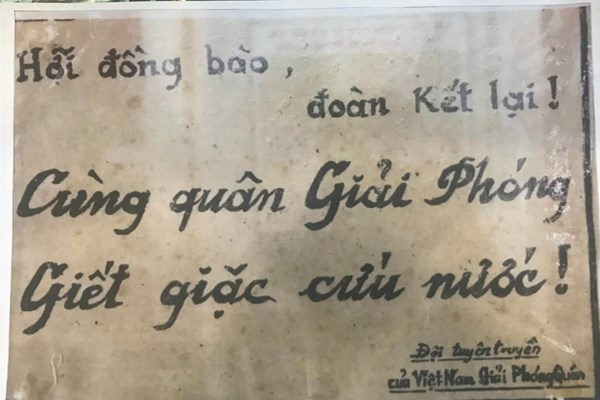 Hỡi đồng bào,
đoàn kết lại!
Cùng quân Giải Phóng
Giết giặc cứu nước!
Đội tuyên truyền
của Việt Nam Giải Phóng Quân